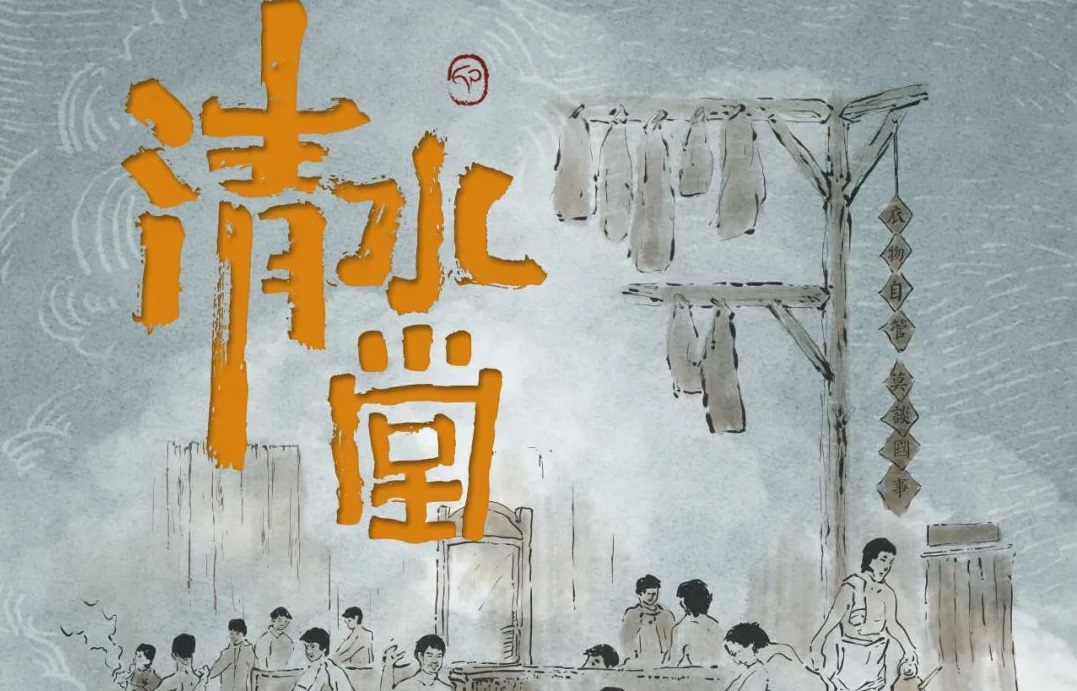 清水堂
衣物自管
莫談國事